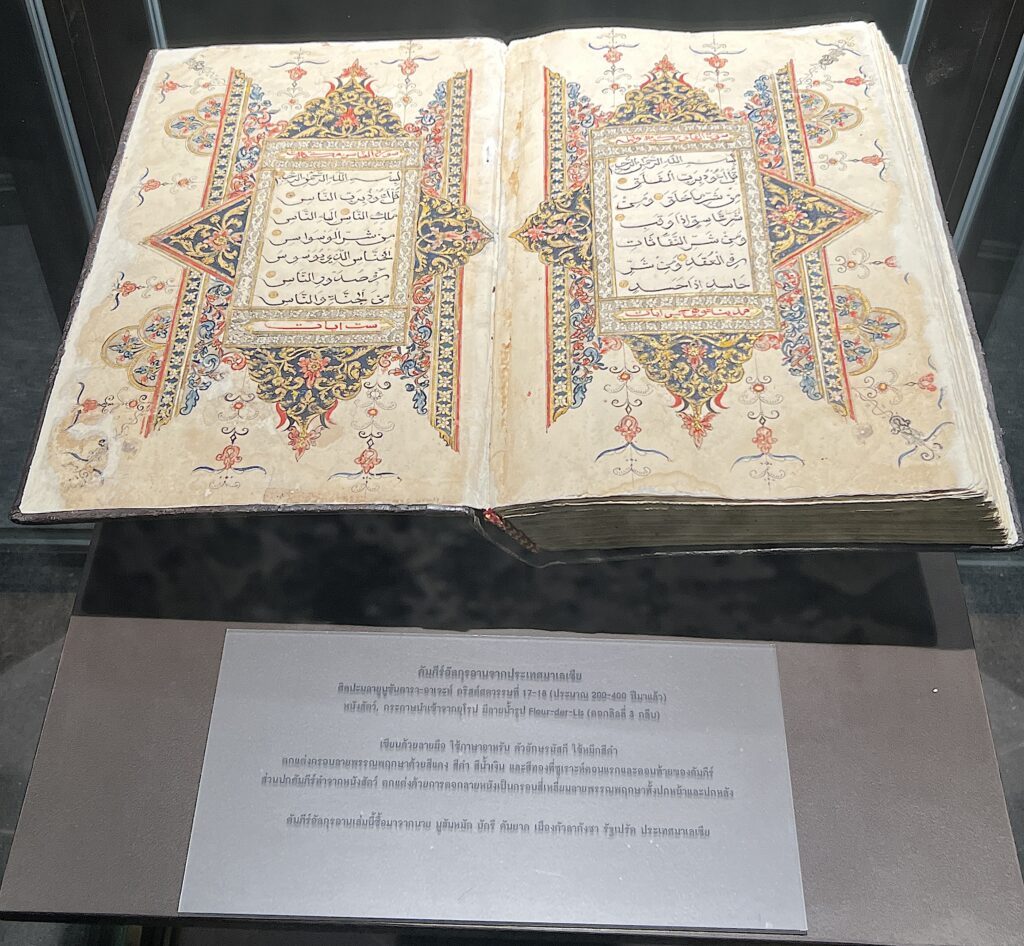 بسم الله الرحمن الرحيم
قل اعوذ برب الفلق
من شر ما خلق ومن
شر غاسق اذا وقب
ومن شر النفاثات
في العقد ومن شر
حاسد اذا حسد
بسم الله الرحمن الرحيم
قل اعوذ برب الناس
ملك الناس اله الناس
من شر الوسواس
الخناس الذي يوسوس
في صدور الناس
من الجنة والناس
ست ايات
คัมภีร์อัลกุรอานจากประเทศมาเลเซีย
ศิลปะมลายูนูซันตารา-อาเจะห์ คริสต์ศตวรรษที่ 17-18 (ประมาณ 200-400 ปีมาแล้ว)
หนังสัตว์, กระดาษนำเข้าจากยุโรป มีลายน้ำรูป Fleur-der-Lis (ดอกลิลลี่ 3 กลีบ)
เขียนด้วยลายมือ ใช้ภาษาอาหรับ ตัวอักษรนัสคี ใช้หมึกสีดำ
ตกแต่งกรอบลายพรรณพฤกษาด้วยสีแดง สีดำ สีน้ำเงิน และสีทองที่ซูเราะห์ตอนแรกและตอนท้ายของคัมภีร์
ส่วนปกคัมภีร์ทำจากหนังสัตว์ ตกแต่งด้วยการตอกลายหนังเป็นกรอบสี่เหลี่ยมลายพรรณพฤกษาทั้งปกหน้าและปกหลัง
คัมภีร์อัลกุรอานเล่มนี้ซื้อมาจากนาย มูฮันหมัด บักรี คันยาด เมืองกัวลากังซา รัฐเปรัค ประเทศมาเลเซีย